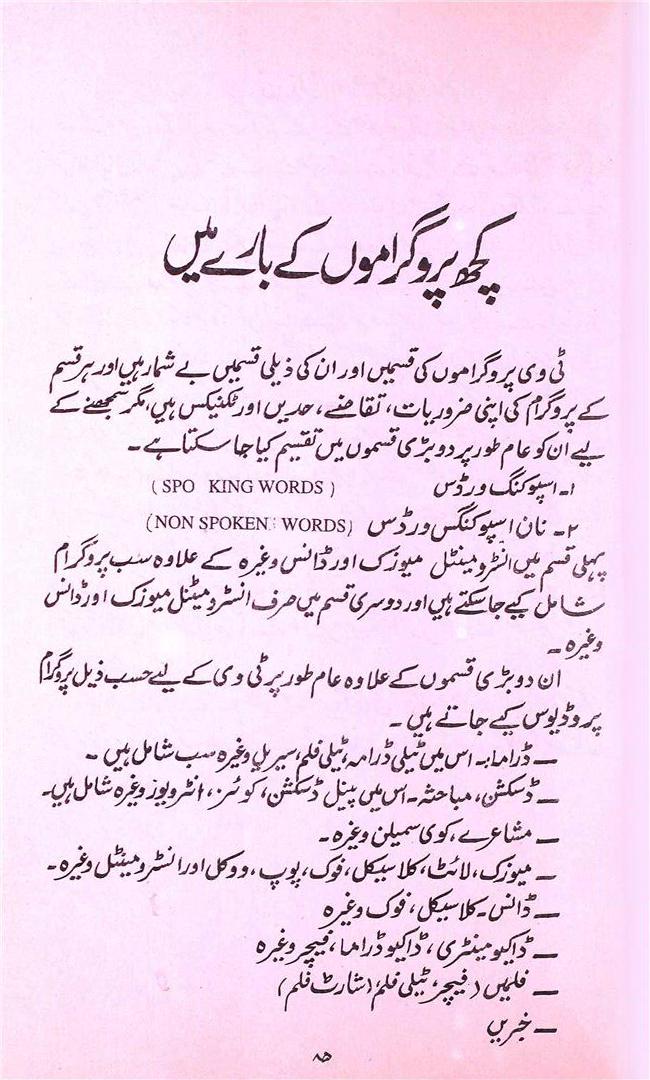 کچھ پروگراموں کے بارے میں
ٹی وی پروگراموں کی قسمیں اور ان کی ذیلی قسمیں بے شمار ہیں اور ہر قسم
کے پروگرام کی اپنی ضروریات، تقاضے، حدیں اور ٹکنیکس ہیں، مگر سمجھنے کے
لیے ان کو عام طور پر دو بڑی قسموں میں تقسیم کیا جا سکتا ہے۔
۱۔ اسپوکنگ ورڈس (SPO KING WORDS)
۲۔ نان اسپوکنگس ورڈس (NON SPOKEN WORDS)
پہلی قسم میں انسٹرومینٹل میوزک اور ڈانس وغیرہ کے علاوہ سب پروگرام
شامل کیے جا سکتے ہیں اور دوسری قسم میں صرف انسٹرومینٹل میوزک اور ڈانس
وغیرہ۔
ان دو بڑی قسموں کے علاوہ عام طور پر ٹی وی کے لیے حسب ذیل پروگرام
پروڈیوس کیے جاتے ہیں۔
— ڈراما:۔ اس میں ٹیلی ڈرامہ، ٹیلی فلم، سیریل وغیرہ سب شامل ہیں۔
— ڈسکشن، مباحثہ۔ اس میں پینل ڈسکشن، کوئز، انٹرویوز وغیرہ شامل ہیں۔
— مشاعرے، کوی سمیلن وغیرہ۔
— میوزک، لائٹ، کلاسیکل، فوک، پوپ، ووکل اور انسٹرومینٹل وغیرہ۔
— ڈانس۔ کلاسیکل، فوک وغیرہ
— ڈاکیومینٹری، ڈاکیو ڈراما، فیچر وغیرہ
— فلمیں (فیچر، ٹیلی فلم، شارٹ فلم)
— خبریں
۸۵